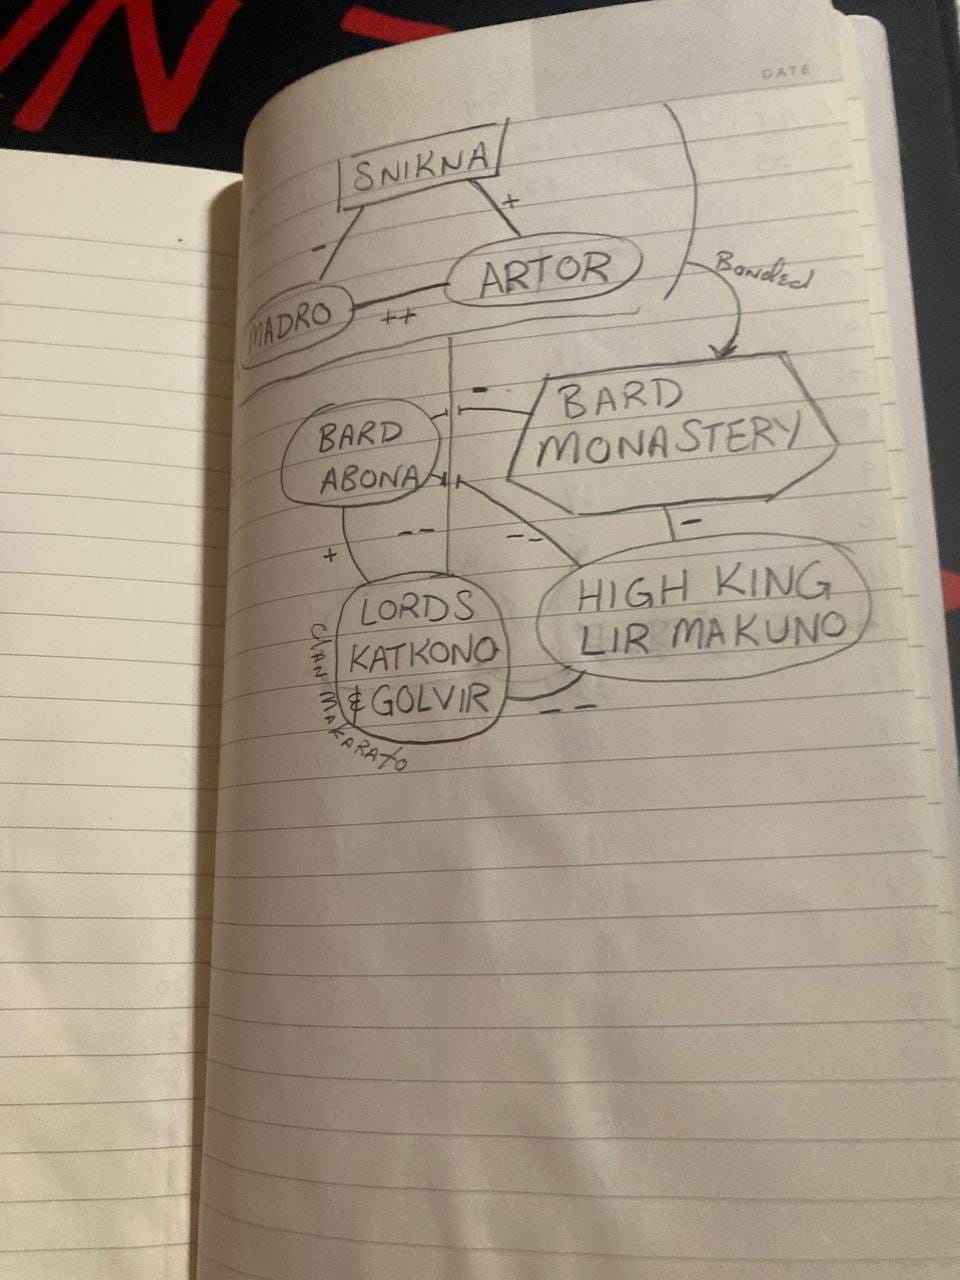 DATE
SNIKNA
- +
MADRO ++ ARTOR
Bonded
BARD
ABONA
-
BARD
MONASTERY
+ -- -- -
LORDS
KATKONO
& GOLVIR
CLAN MAKARATO
HIGH KING
LIR MAKUNO
--